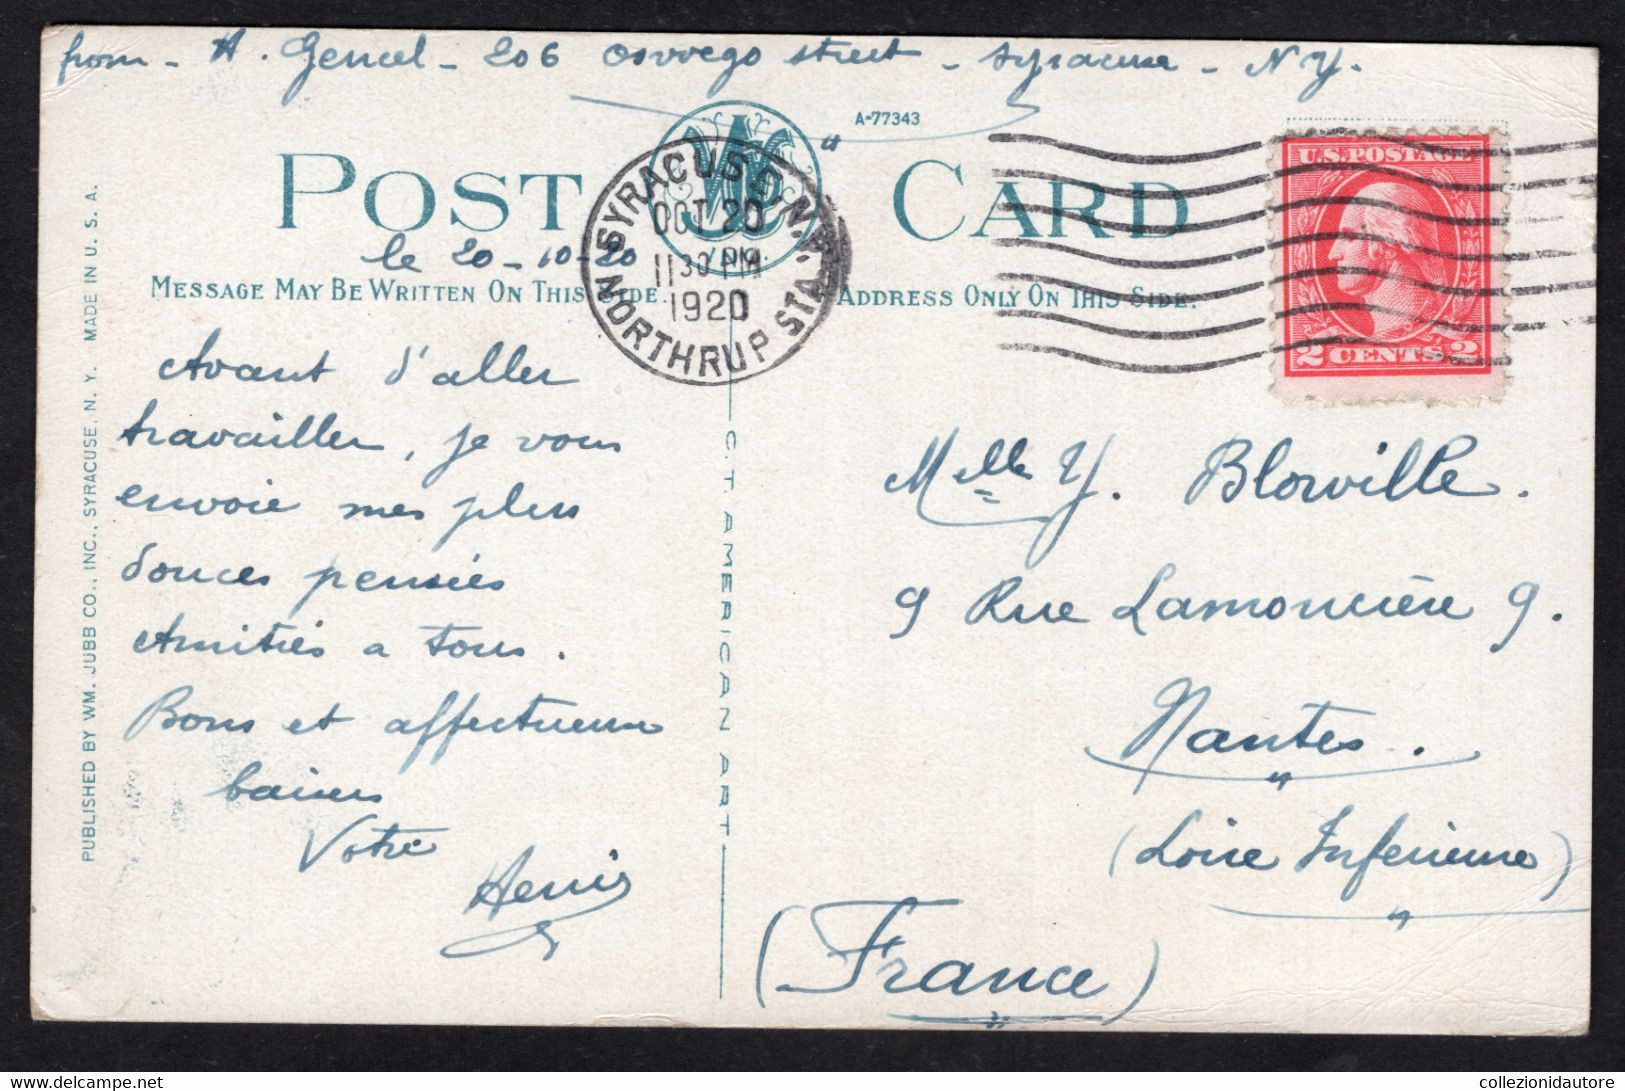 from - A. Gencel - 206 Oswego street - Syracuse - N Y.
A-77343
POST CARD
SYRACUSE, N.Y.
OCT 20
11 30 PM
1920
NORTHRUP STA.
U.S. POSTAGE
2 CENTS 2
le 20-10-20
MESSAGE MAY BE WRITTEN ON THIS SIDE.
ADDRESS ONLY ON THIS SIDE.
Avant d'aller
travailler, je vous
envoie mes plus
douces pensées
Amitiés a tous.
Bons et affectueux
baisers
Votre
Henri
Melle Y. Blorville.
9 Rue Lamoricière 9.
Nantes.
(Loire Inferieure)
(France)
C. T. AMERICAN ART
PUBLISHED BY WM. JUBB CO., INC., SYRACUSE, N. Y. MADE IN U. S. A.
delcampe.net
collezionidautore